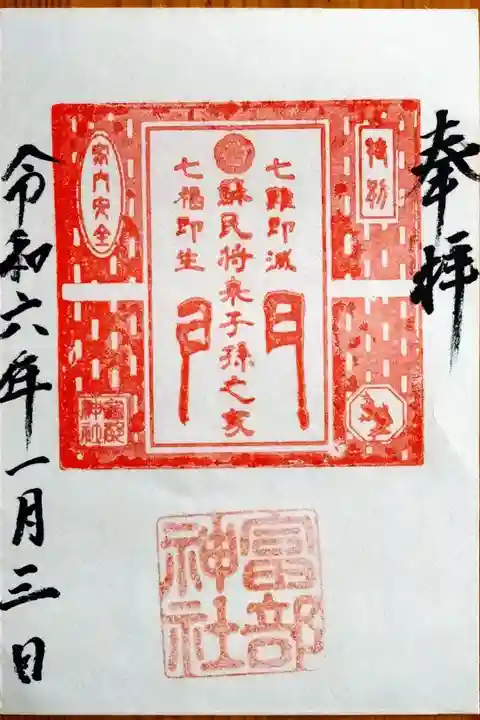 奉拝
七難即滅
蘇民将来子孫之家門
七福即生
家内安全
富部神社
富部神社
令和六年一月三日